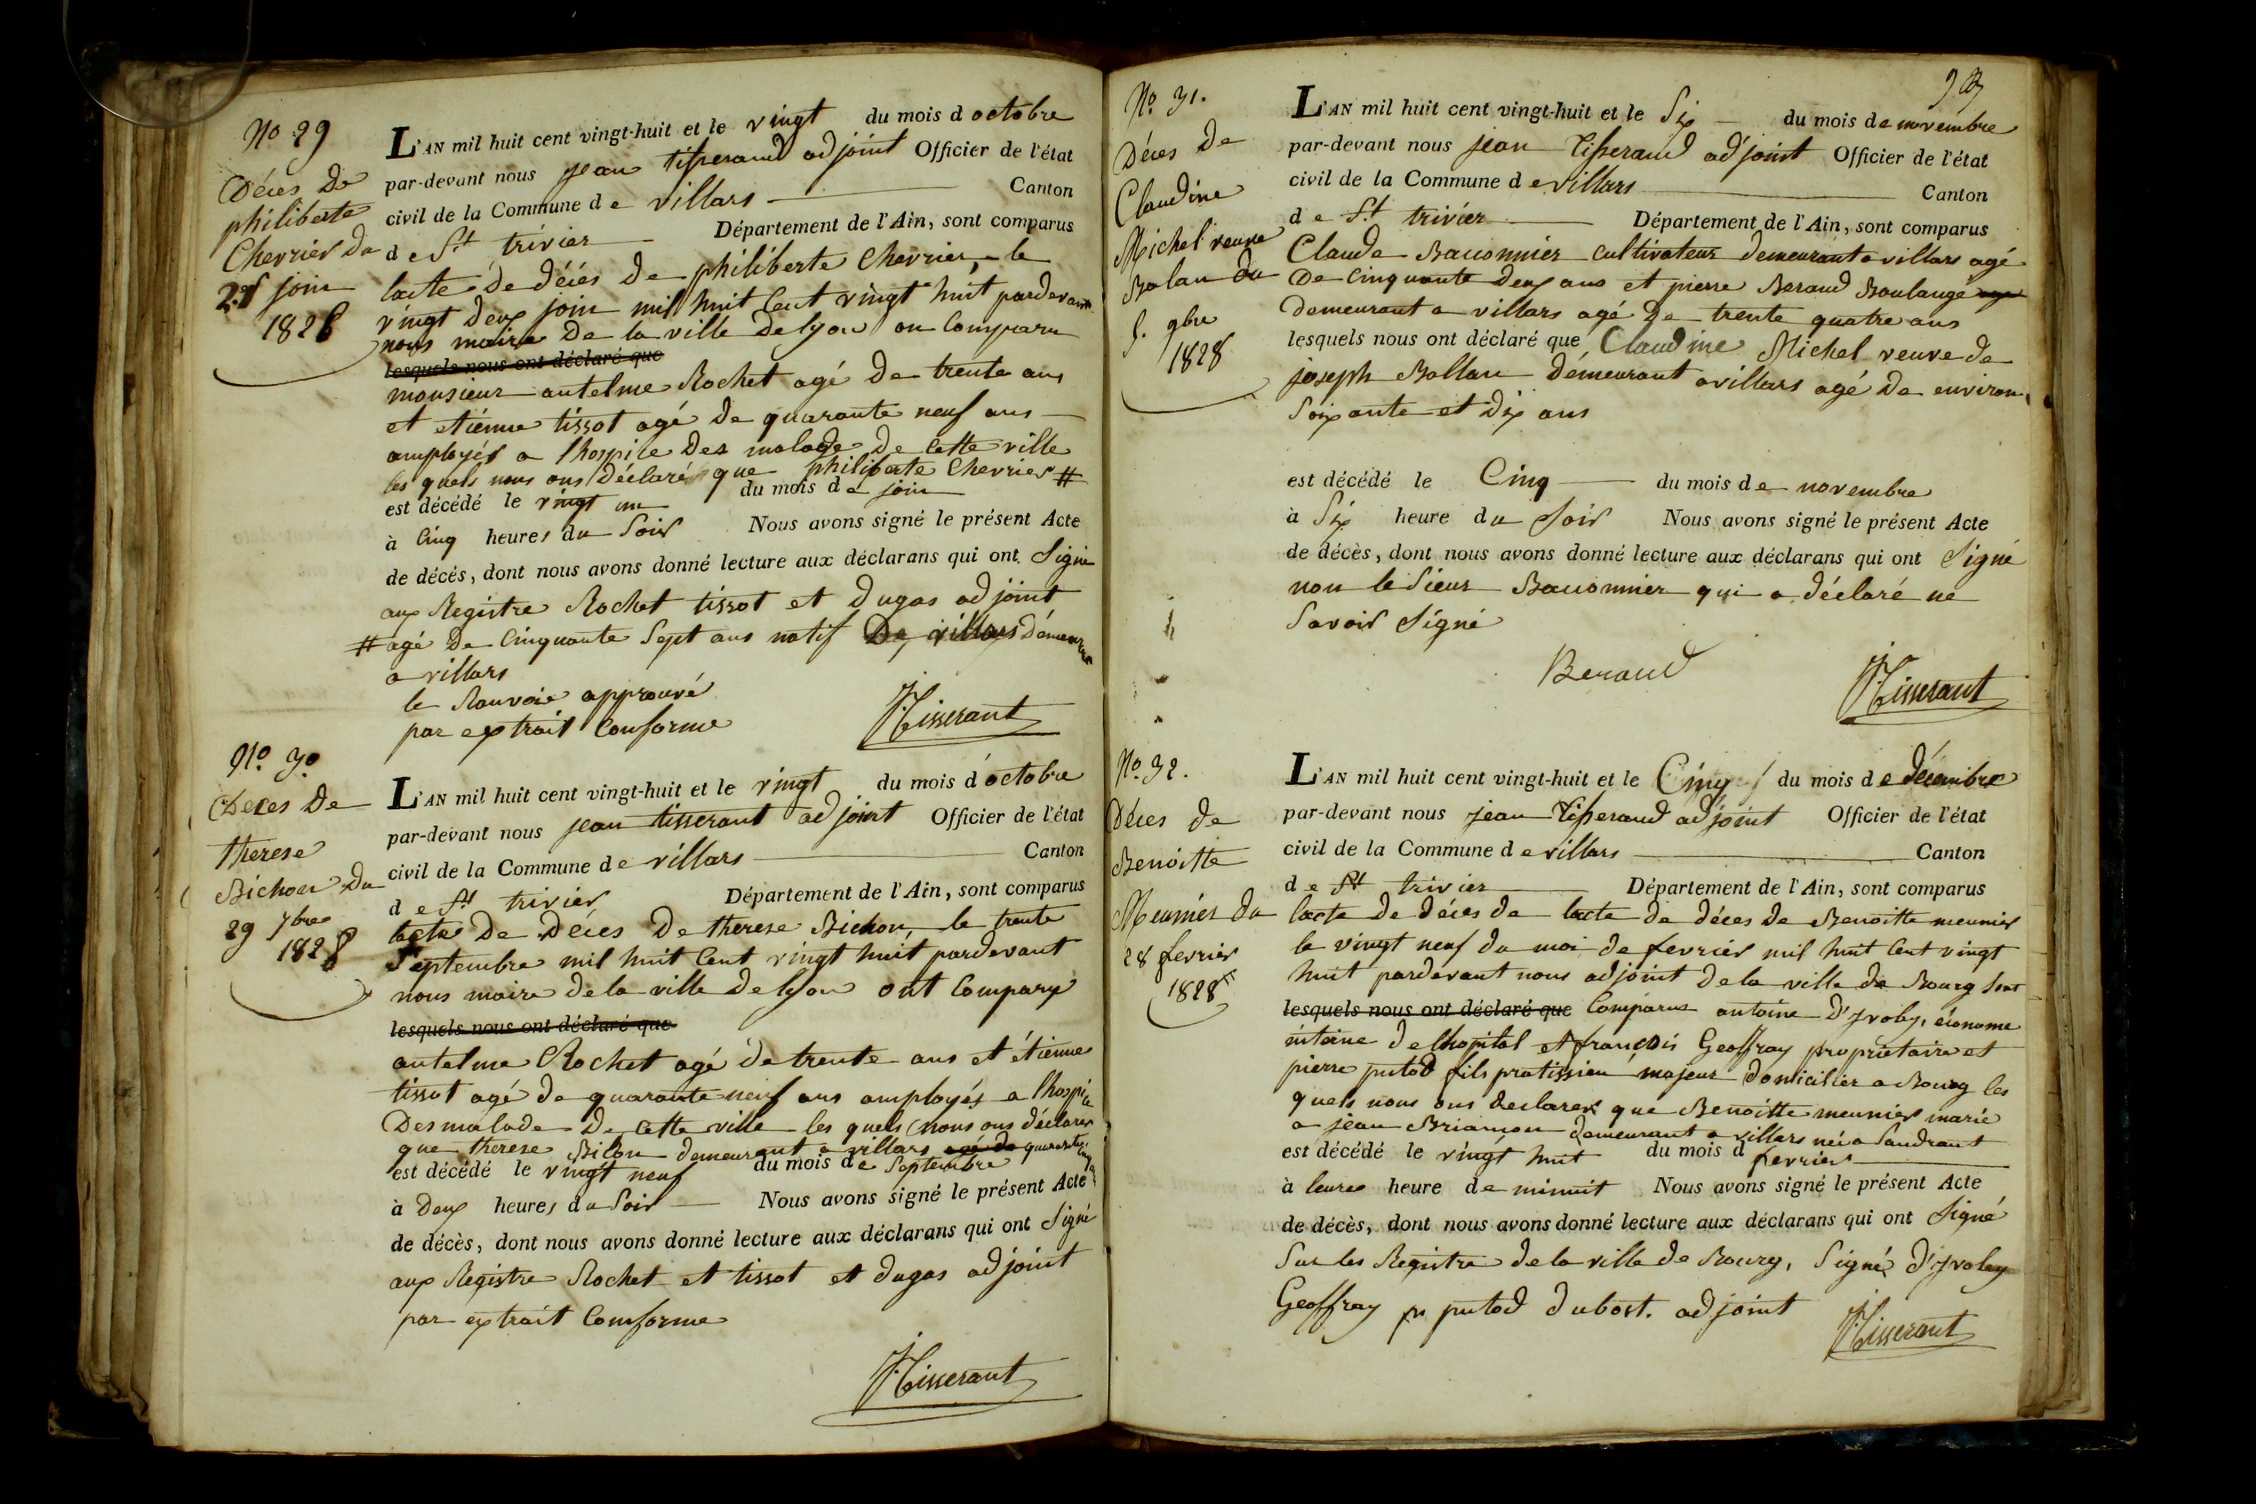 No 29
Déces de
philiberte
Cherrier du
21 join
1828
L'AN mil huit cent vingt-huit et le vingt du mois d octobre
par-devant nous jean tisserand adjoint Officier de l'état
civil de la Commune de villars Canton
de St trivier Département de l'Ain, sont comparus
lacte de déces de philiberte Cherrier, le
vingt deux join mil huit Cent vingt huit pardevant
nous maire de la ville de lyon on Comparu
lesquels nous ont déclaré que
monsieur antelme Rochet agé de trente ans
et etienne tissot agé de quarante neuf ans
amployés a lhospice des malade de Cette ville
les quels nous ons Déclaré que philiberte Cherrier #
est décédé le vingt un du mois de join
à Cinq heures du Soir Nous avons signé le présent Acte
de décès, dont nous avons donné lecture aux déclarans qui ont Signé
aux Registre Rochet tissot et dugas adjoint
# agé de Cinquante Sept ans natif De villars démeurant
a villars
le Ranvoie approuvé
par extrait Conforme
J. Tisserant
No 30
Déces de
therese
Bichon du
29 7bre
1828
L'AN mil huit cent vingt-huit et le vingt du mois d'octobre
par-devant nous jean tisserant adjoint Officier de l'état
civil de la Commune de villars Canton
de St trivier Département de l'Ain, sont comparus
lacte De Déces De therese Bichon, le trente
Septembre mil huit Cent vingt huit pardevant
nous maire de la ville de lyon ont Comparu
lesquels nous ont déclaré que
antelme Rochet agé de trente ans et étienne
tissot agé de quarante neuf ans amployés a lhospice
Des malade De Cette ville les quels nous ons déclarer
que therese Bilon demeurant a villars agé de quarante
est décédé le vingt neuf du mois de Septembre
à deux heures du Soir Nous avons signé le présent Acte
de décès, dont nous avons donné lecture aux déclarans qui ont Signé
aux Registre Rochet et tissot et dugas adjoint
par extrait Comforme
J. Tisserant
No. 31.
Déces De
Claudine
Michel veuve
Balan du
5. 9bre
1828
93
L'AN mil huit cent vingt-huit et le Six du mois de novembre
par-devant nous jean tisserand adjoint Officier de l'état
civil de la Commune de villars Canton
de St trivier Département de l'Ain, sont comparus
Claude Bauonnier Cultivateur demeurant a villars agé
De Cinquante deux ans et pierre Beraud Boulangé
demeurant a villars agé de trente quatre ans
lesquels nous ont déclaré que Claudine Michel veuve de
joseph Ballan démeurant a villars agé de environ
Soixante et dix ans
est décédé le Cinq du mois de novembre
à Six heure du Soir Nous avons signé le présent Acte
de décès, dont nous avons donné lecture aux déclarans qui ont Signé
non le Sieur Bauonnier qui a déclaré ne
Savoir Signé
Beraud
J. Tisserant
No. 32.
Déces de
Benoitte
Meunier du
28 fevrier
1828
L'AN mil huit cent vingt-huit et le Cinq du mois de décembre
par-devant nous jean tisserand adjoint Officier de l'état
civil de la Commune de villars Canton
de St trivier Département de l'Ain, sont comparus
lacte de déces de lacte de déces de Benoitte meunier
le vingt neuf du moi de fevrier mil huit Cent vingt
huit pardevant nous adjoint de la ville de Bourg sont
lesquels nous ont déclaré que Comparus antoine D'yvoley, économe
interine de lhopital et françois Geoffray propriétaire et
pierre putod fils pratissien majeur domicilier a Bourg les
quels nous ons declarer que Benoitte meunier marié
a jean Briamon demeurant a villars née a Sandrant
est décédé le vingt huit du mois d fevrier
à leure heure de minuit Nous avons signé le présent Acte
de décès, dont nous avons donné lecture aux déclarans qui ont Signé
Sur les Registre de la ville de Bourg, Signé, D'yvoley
Geoffray pre putod dubost. adjoint
J. Tisserant